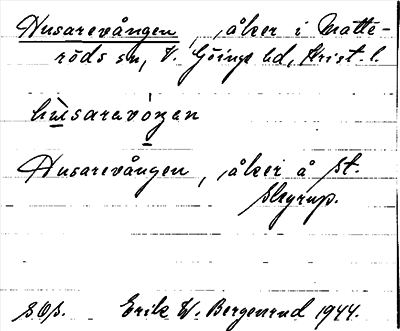 Husarevången, åker i Matte-
röds sn, V. Göinge hd, Krist. l.
hùsaravóŋen
Husarevången, åker å St.
Skyrup.
sOs. Erik W. Bergenrud 1944.